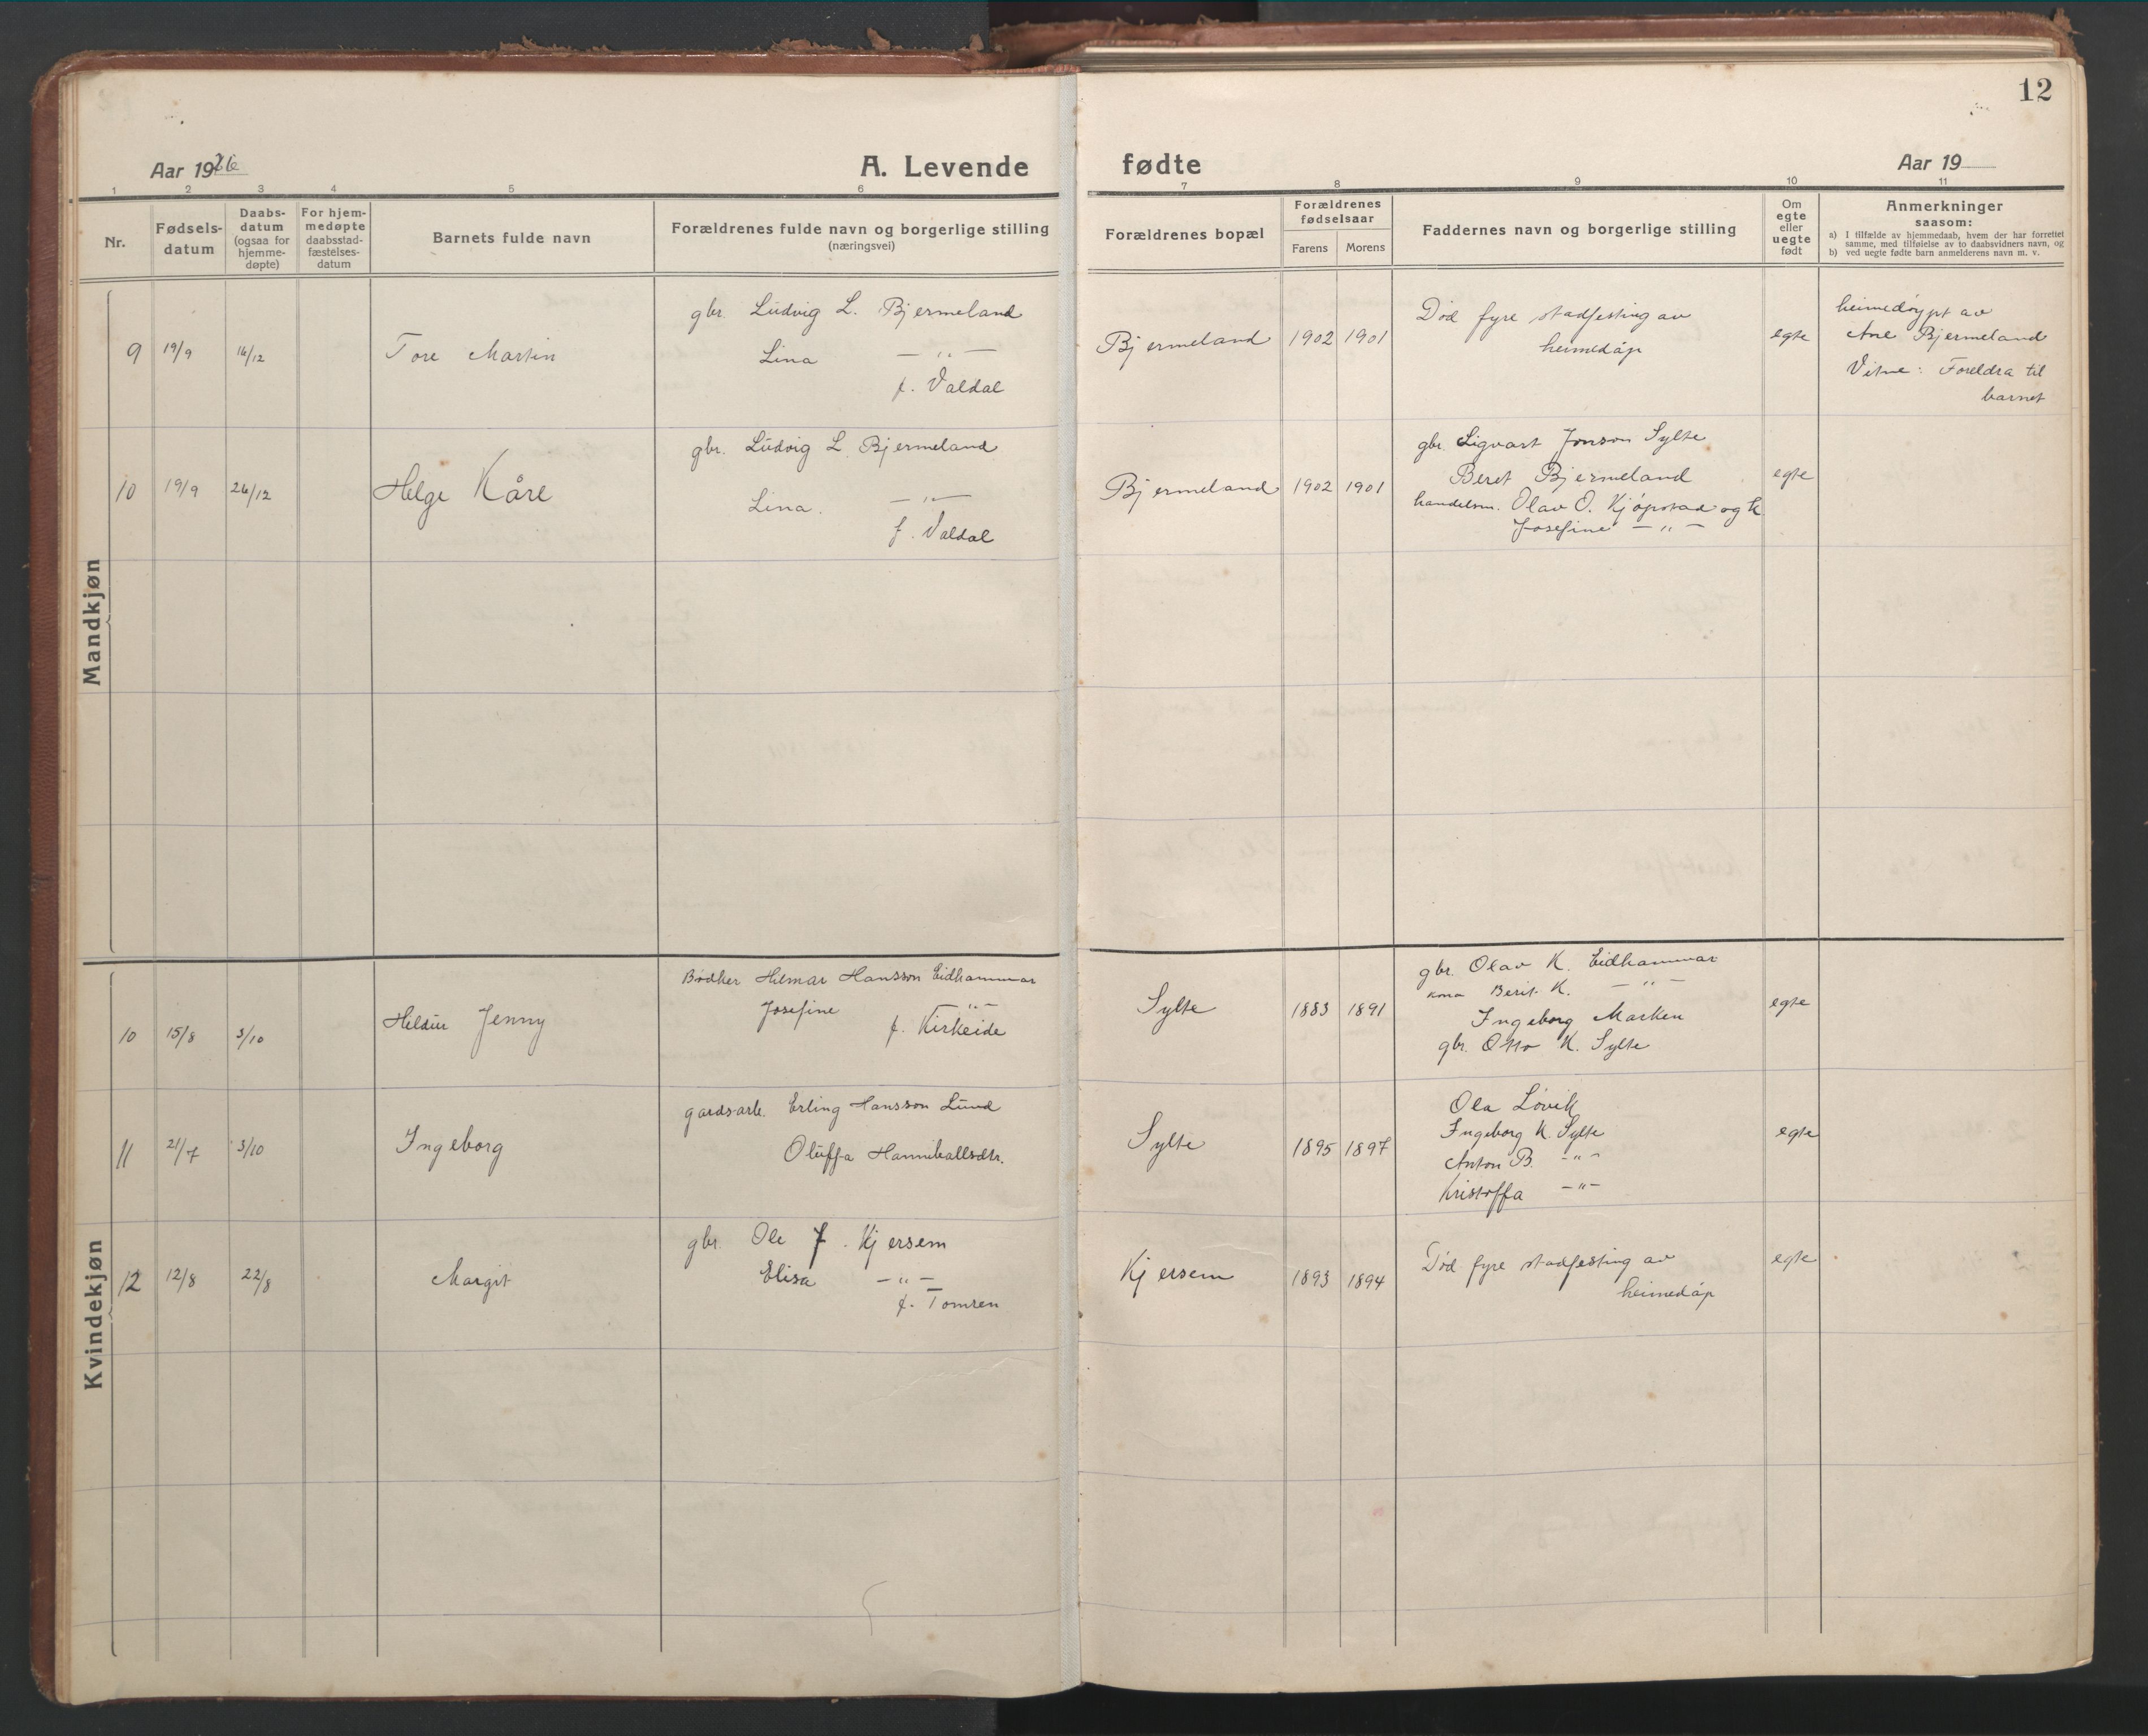 12
Aar 1926
A. Levende fødte
Aar 19
1 2 3 4 5 6 7 8 9 10 11
Nr.
Fødsels-
datum
Daabs-
datum
(ogsaa for
hjemme-
døpte)
For hjem-
medøpte
daabsstad-
fæstelses-
datum
Barnets fulde navn
Forældrenes fulde navn og borgerlige stilling
(næringsvei)
Forældrenes bopæl
Forældrenes
fødselsaar
Farens Morens
Faddernes navn og borgerlige stilling
Om
egte
eller
uegte
født
Anmerkninger
saasom:
a) I tilfælde av hjemmedaab, hvem der har forrettet
samme, med tilføielse av to daabsvidners navn, og
b) ved uegte fødte barn anmelderens navn m. v.
Mandkjøn
9 19/9 16/12 Tore Martin
gbr. Ludvig L. Bjermeland
Lina — " —
f. Valdal
Bjermeland 1902 1901
Død fyre stadfesting av
heimedåp
egte
heimedøypt av
Ane Bjermeland
Vitne: Foreldra til
barnet
10 19/9 26/12 Helge Kåre
gbr. Ludvig L. Bjermeland
Lina. — " —
f. Valdal
Bjermeland 1902 1901
gbr. Sigvart Jonson Sylte
Beret Bjermeland
handelsm. Olav O. Kjøpstad og k
Josefine — " —
egte
Kvindekjøn
10 15/8 3/10 Hildur Jenny
Bødker Hilmar Hansson Eidhammar
Josefine — " —
f. Kirkeide
Sylte 1883 1891
gbr. Olav K. Eidhammar
kona Berit K. — " —
Ingeborg Marken
gbr. Otto K. Sylte
egte
11 21/7 3/10 Ingeborg
gardsarb. Erling Hansson Lund
Oluffa Hanniballsdtr.
Sylte 1895 1897
Ola Løvik
Ingeborg K. Sylte
Anton B. — " —
Kristoffa — " —
egte
12 12/8 22/8 Margit
gbr. Ole J. Kjersem
Elisa — " —
f. Tomren
Kjersem 1893 1894
Død fyre stadfesting av
heimedåp
egte